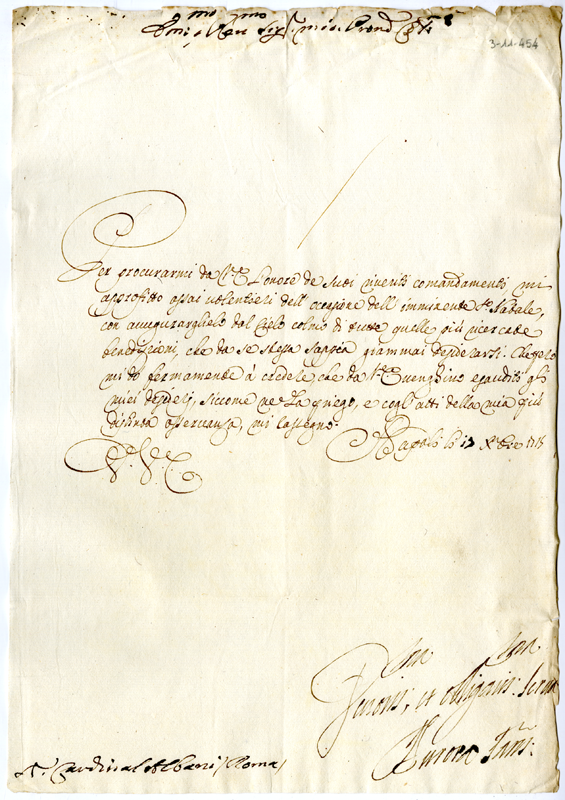 Em.mo e Rev.mo Sig.r mio e Pron. Col.mo
3-11-454
Per procurarmi da V.E. l'onore de suoi riveriti comandamenti mi
approfitto assai volentieri dell'occasione dell'imminente S. Natale,
con augurarglielo dal Cielo colmo di tutte quelle più ricercate
benedizioni, che da se stessa sappia giammai desiderarsi. Che però
mi do fermamente à credere che da V.E. venghino esauditi gli
miei desiderj, siccome ne La priego, e cogl'atti della mia più
distinta osservanza, mi rassegno.
Napoli li 17 Xbre 1715
V.E.
Devotis. et obligatis. Serva
Aurora
A. Cardinal Albani (Roma)